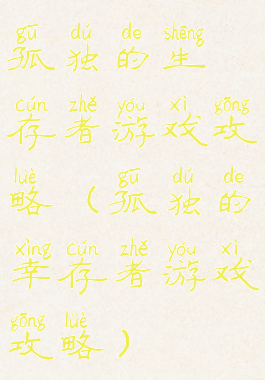 gū dú de shēng
孤独的生
cún zhě yóu xì gōng
存者游戏攻
lüè gū dú de
略（孤独的
xìng cún zhě yóu xì
幸存者游戏
gōng lüè
攻略）